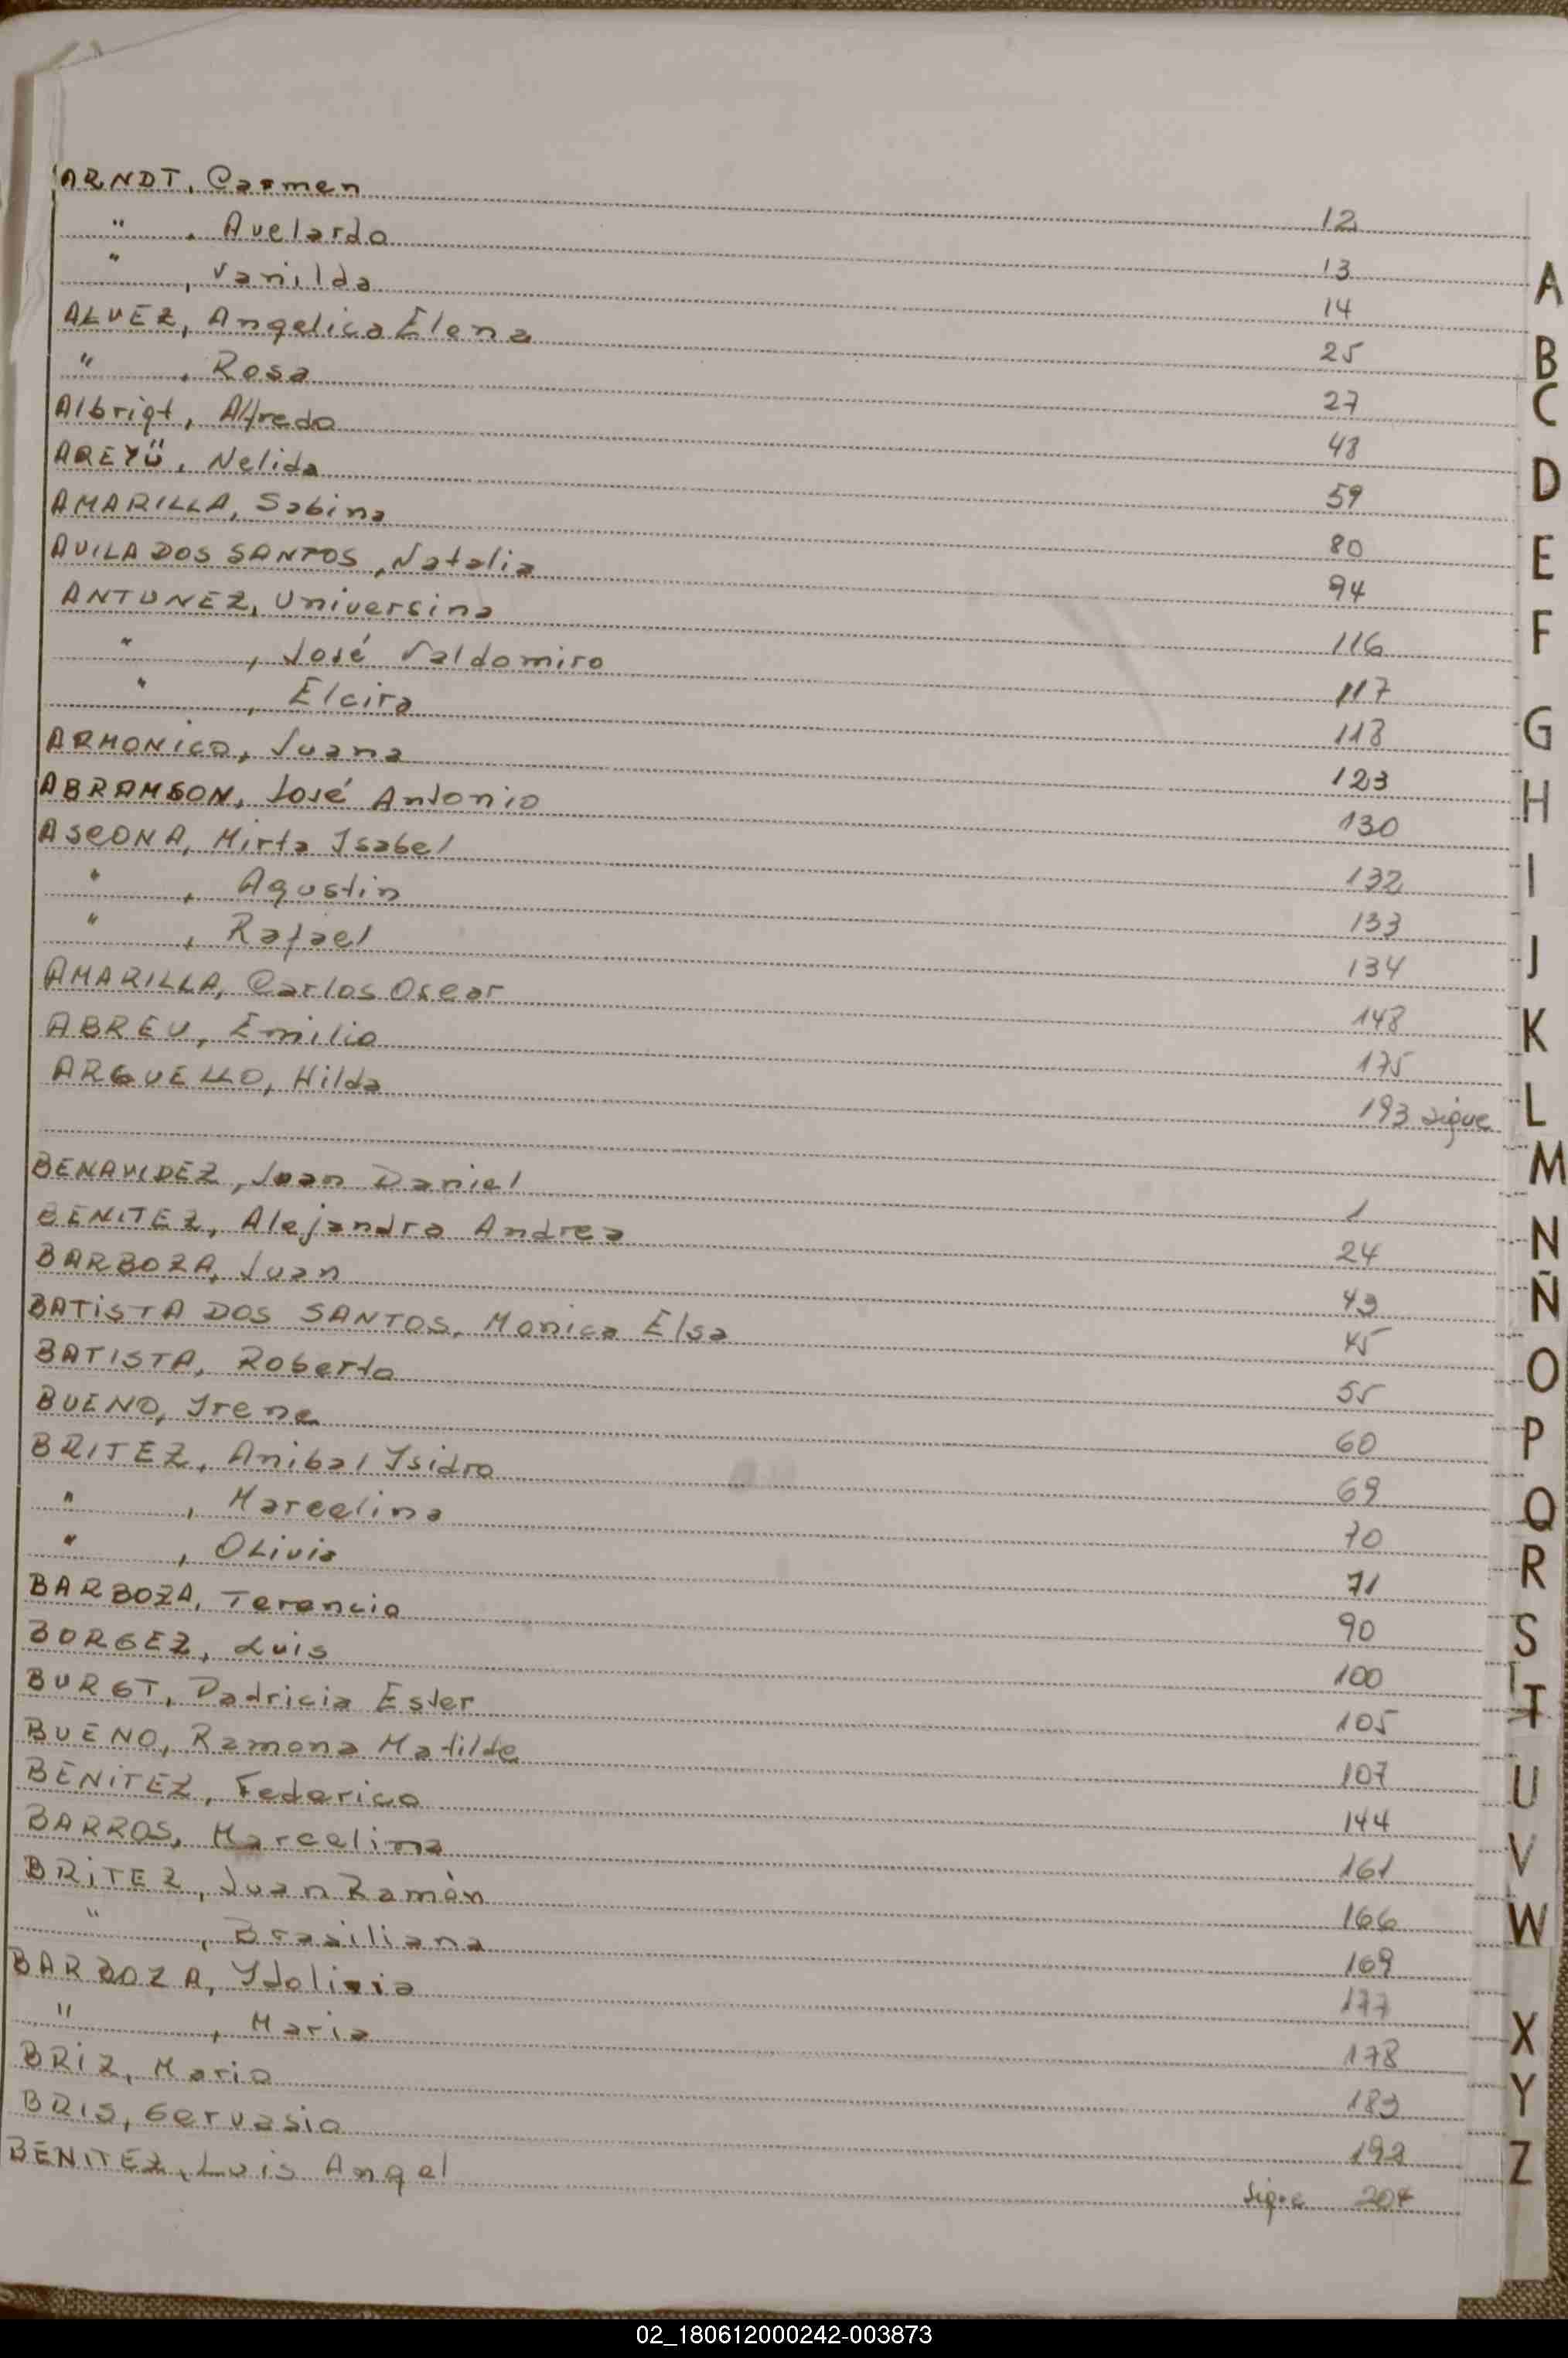 ARNDT, Carmen 12
" , Avelardo 13
" , Vanilda 14
ALVEZ, Angelica Elena 25
" , Rosa 27
Albrigt, Alfredo 48
AREYÜ, Nelida 59
AMARILLA, Sabina 80
AVILA DOS SANTOS, Natalia 94
ANTUNEZ, Universina 116
" , José Valdomiro 117
" , Elcira 118
ARMONICO, Juana 123
ABRAMSON, José Antonio 130
ASCONA, Mirta Isabel 132
" , Agustin 133
" , Rafael 134
AMARILLA, Carlos Oscar 148
ABREU, Emilio 175
ARGUELLO, Hilda 193 sigue
BENAVIDEZ, Juan Daniel 1
BENITEZ, Alejandra Andrea 24
BARBOZA, Juan 43
BATISTA DOS SANTOS, Monica Elsa 45
BATISTA, Roberto 55
BUENO, Irene 60
BRITEZ, Anibal Isidro 69
" , Marcelina 70
" , Olivia 71
BARBOZA, Terencio 90
BORGEZ, Luis 100
BURGT, Patricia Ester 105
BUENO, Ramona Matilde 107
BENITEZ, Federico 144
BARROS, Marcelina 161
BRITEZ, Juan Ramón 166
" , Brasiliana 169
BARBOZA, 177
" , Maria 178
BRIZ, Mario 183
BRIS, Gervasio 192
BENITEZ, Luis Angel sigue 204
A
B
C
D
E
F
G
H
I
J
K
L
M
N
Ñ
O
P
Q
R
S
T
U
V
W
X
Y
Z
02_180612000242-003873